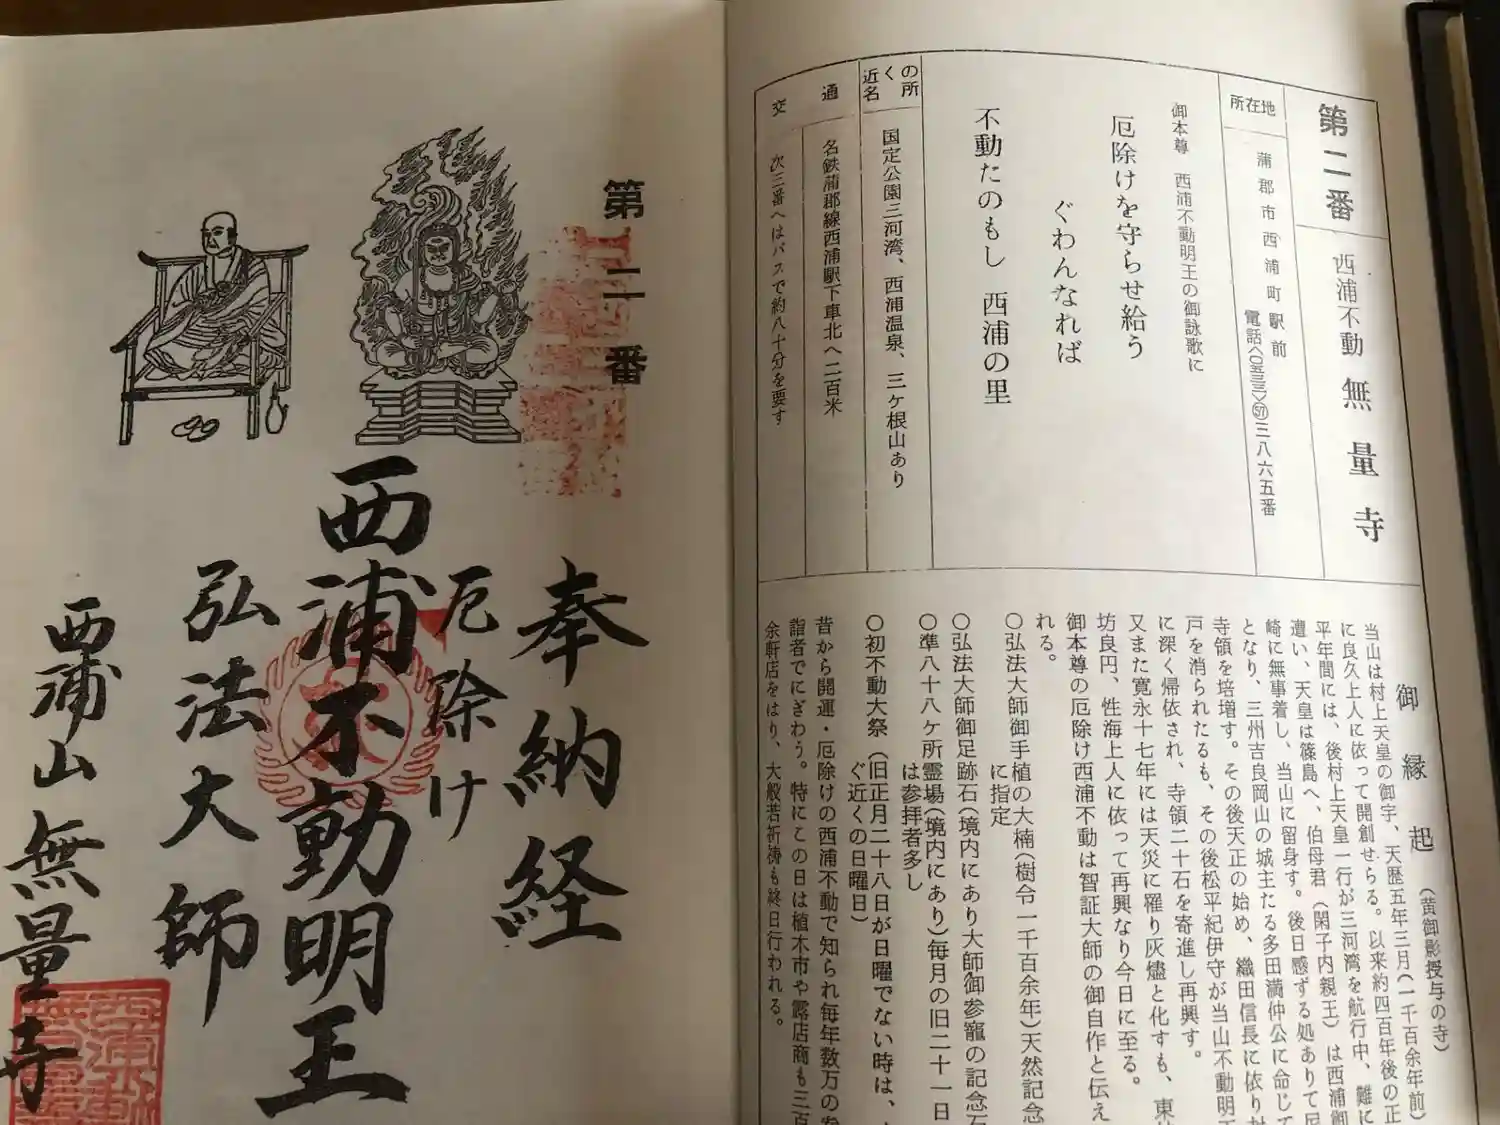 第二番
西浦不動 無量寺
所在地
蒲郡市西浦町駅前
電話〈〇五三三〉57三八六五番
御本尊 西浦不動明王の御詠歌に
厄除けを守らせ給う
ぐわんなれば
不動たのもし 西浦の里
近くの名所
国定公園三河湾、西浦温泉、三ヶ根山あり
交通
名鉄蒲郡線西浦駅下車北へ二百米
次三番へはバスで約八十分を要す
御縁起
(黄御影授与の寺)
当山は村上天皇の御宇、天歴五年三月(一千百余年前)
に良久上人に依って開創せらる。以来約四百年後の正
平年間には、後村上天皇一行が三河湾を航行中、難に
遭い、天皇は篠島へ、伯母君(閑子内親王)は西浦御
崎に無事着し、当山に留身す。後日感ずる処ありて尼
となり、三州吉良岡山の城主たる多田満仲公に命じて
寺領を培増す。その後天正の始め、織田信長に依り
戸を消られたるも、その後松平紀伊守が当山不動明王
に深く帰依され、寺領二十石を寄進し再興す。
又また寛永十七年には天災に罹り灰燼と化すも、東
坊良円、性海上人に依って再興なり今日に至る。
御本尊の厄除け西浦不動は智証大師の御自作と伝え
れる。
○弘法大師御手植の大楠(樹令一千百余年)天然記念
に指定
○弘法大師御足跡石(境内にあり大師御参寵の記念石
○準八十八ヶ所霊場(境内にあり)毎月の旧二十一日
は参拝者多し
○初不動大祭(旧正月二十八日が日曜でない時は、
ぐ近くの日曜日)
昔から開運・厄除けの西浦不動で知られ毎年数万の参
詣者でにぎわう。特にこの日は植木市や露店商も三百
余軒店をはり、大般若祈祷も終日行われる。
第二番
奉納経
厄除け
西浦不動明王
弘法大師
西浦山無量寺